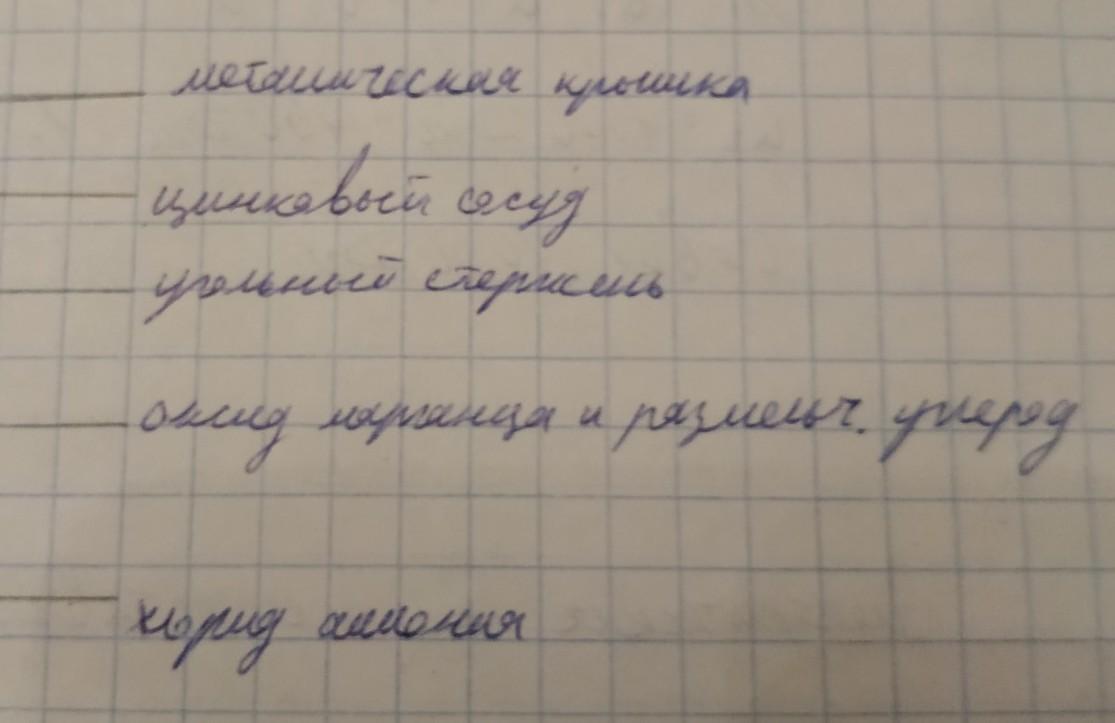 металическая крышка
цинковый сосуд
угольный стержень
оксид марганца и размельч. углерод
хлорид аммония